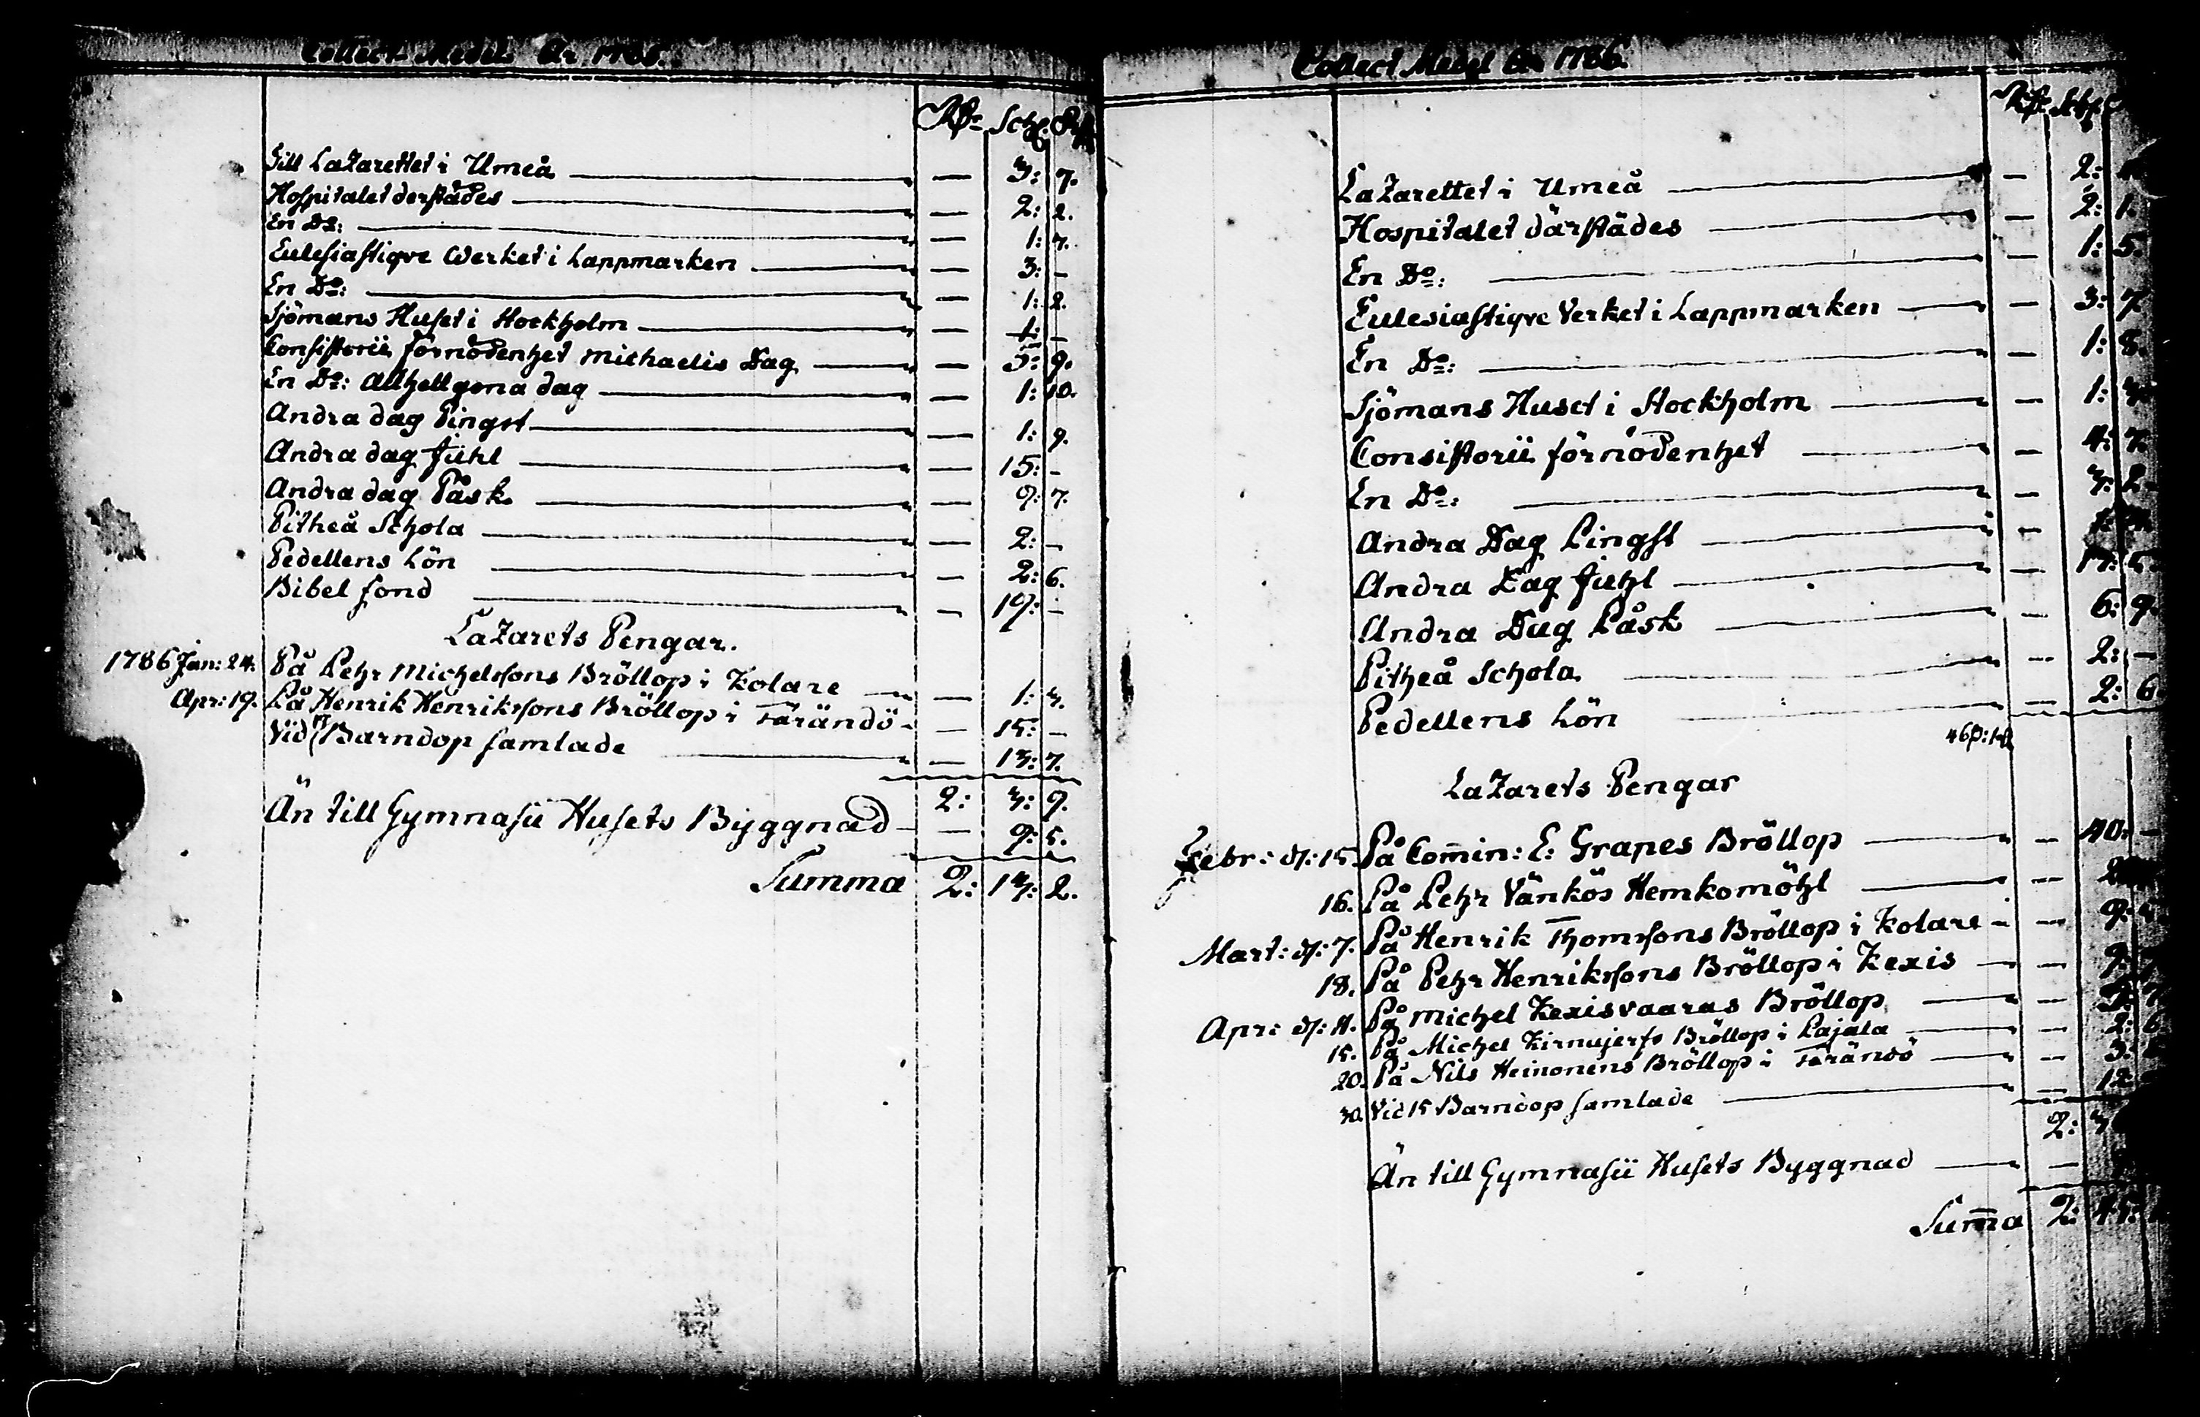 Collect Medel År 1785.
Rdr Sch. R
Till Lazarettet i Umeå — 3: 7.
Hospitalet derstädes — 2: 2.
En Do: — 1: 7.
Eclesiastiqve Werket i Lappmarken — 3: –
En Do: — 1: 2.
Sjömans Huset i Stockholm — 1: –
Consistorii förnödenhet Michaelis Dag — 5: 9.
En Do: Allhellgona dag — 1: 10.
Andra dag Pingst — 1: 9.
Andra dag Juhl — 15: –
Andra dag Påsk — 9: 7.
Pitheå Schola — 2: –
Pedellens Lön — 2: 6.
Bibel fond — 19: –
Lazarets Pengar.
1786 Jan: 24. På Pehr Michelssons Bröllop i Kolare — 1: 3.
Apr: 19. På Henrik Henrikssons Bröllop i Tärändö — 15: –
Vid 17 Barndop samlade — 13: 7.
2: 3: 9.
Än till Gymnasii Husets Byggnad — 9: 5.
Summa 2: 13: 2.
Collect Medel År 1786.
Rdr Sch.
Lazarettet i Umeå — 2:
Hospitalet därstädes — 2: 1.
En Do: — 1: 5.
Eclesiastiqve Verket i Lappmarken — 3: 7
En Do: — 1: 8.
Sjömans Huset i Stockholm — 1:
Consistorii förnödenhet — 4: 7.
En Do: — 3: 2.
Andra Dag Pingst —
Andra Dag Juhl — 17:
Andra Dag Påsk — 6: 9.
Pitheå Schola — 2: –
Pedellens Lön — 2: 6.
Lazarets Pengar
Febr: d: 15. På Com̄in: E: Grapes Bröllop — 40: –
16. På Pehr Vänkös Hemkomöhl — 2
Mart: d: 7. På Henrik Thomssons Bröllop i Kolare — 9:
18. På Pehr Henrikssons Bröllop i Kexis — 9:
Apr: d: 11. På Michel Kexisvaaras Bröllop —
15. På Michel Kirnujerfs Bröllop i Pajala — 2: 6
20. På Nils Heinonens Bröllop i Tärändö — 3:
30. Vid 15 Barndop samlade — 12
2: 3
Än till Gymnasii Husets Byggnad —
Sum̄a 2: